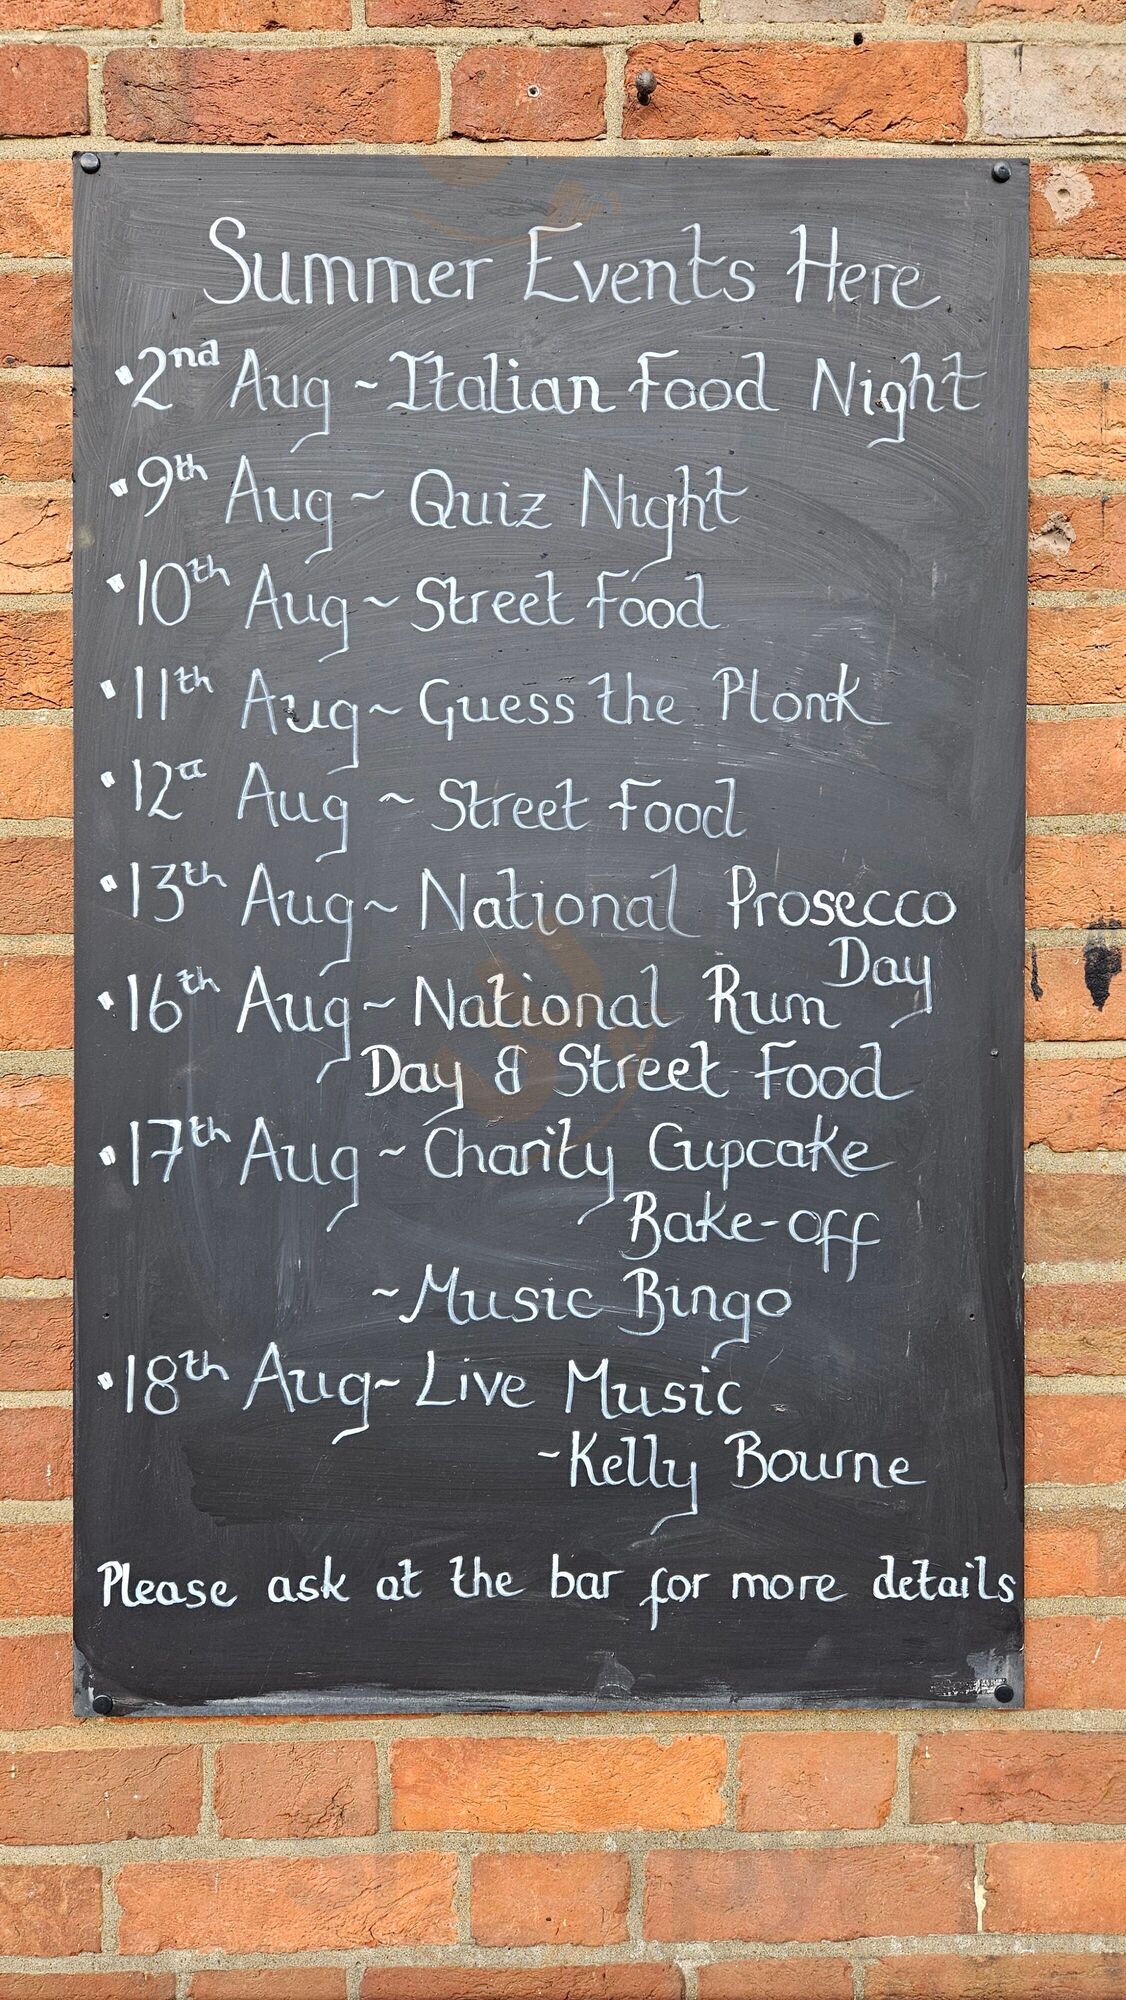 Summer Events Here
•2nd Aug ~ Italian Food Night
•9th Aug ~ Quiz Night
•10th Aug ~ Street Food
•11th Aug ~ Guess the Plonk
•12th Aug ~ Street Food
•13th Aug ~ National Prosecco
Day
•16th Aug ~ National Rum
Day & Street Food
•17th Aug ~ Charity Cupcake
Bake-off
~ Music Bingo
•18th Aug ~ Live Music
~ Kelly Bourne
Please ask at the bar for more details